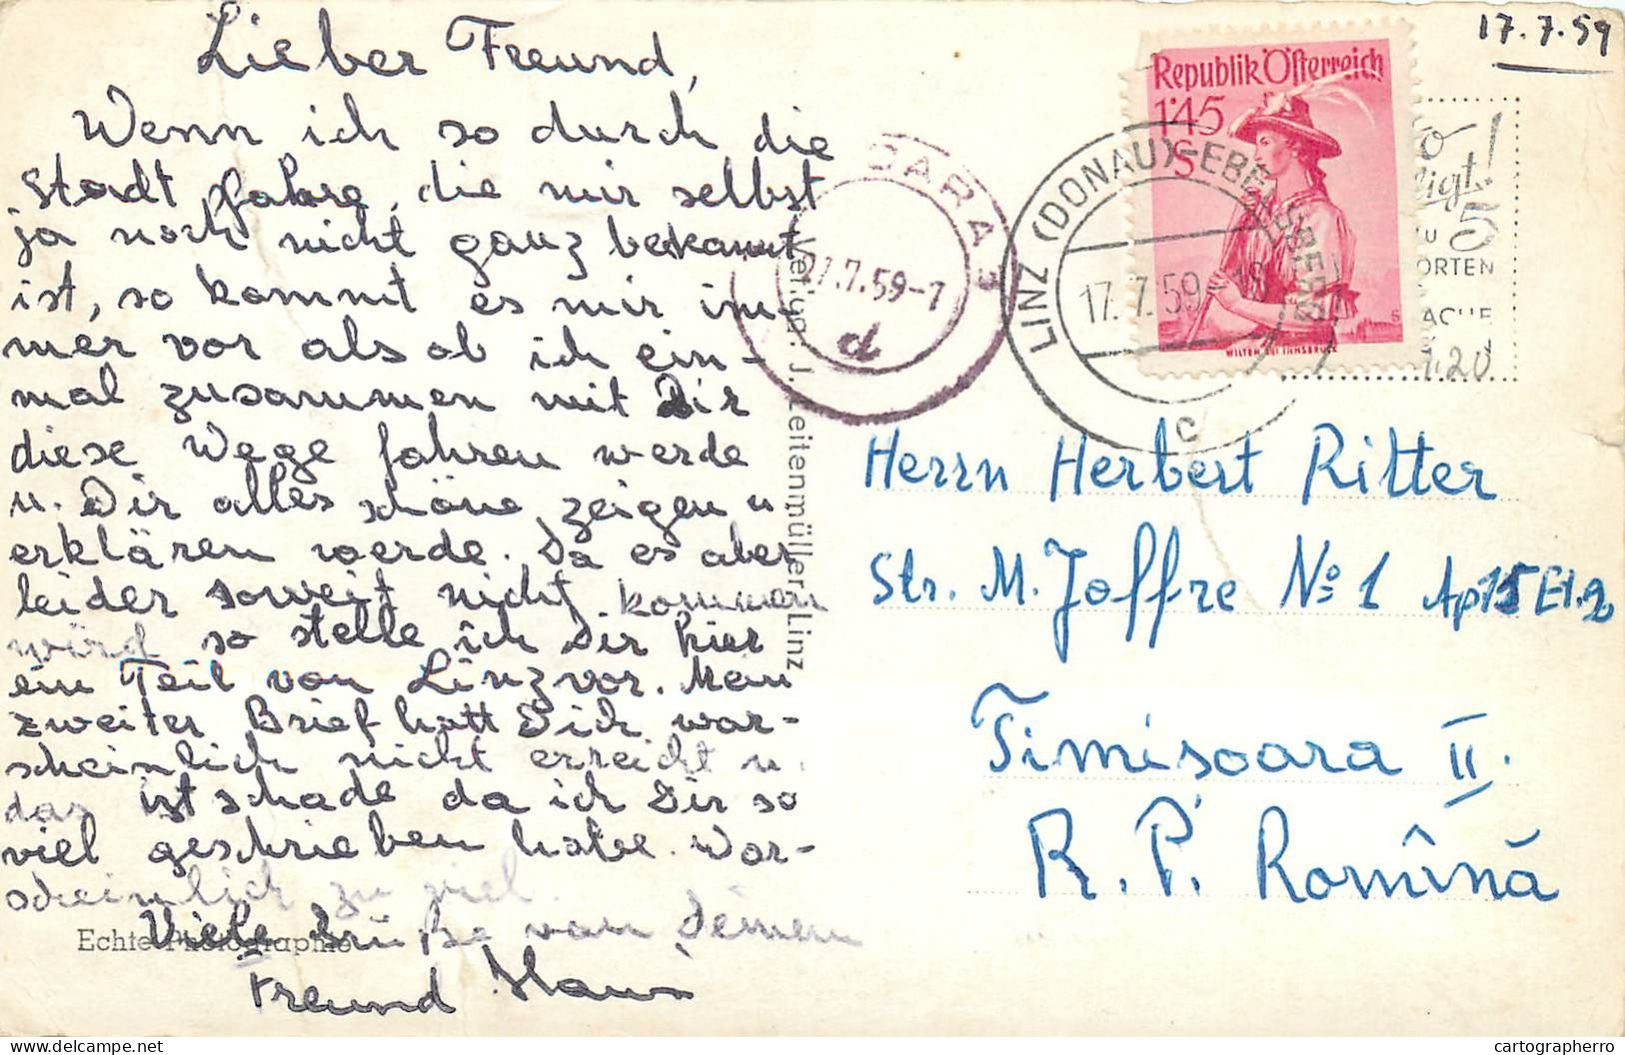 17.7.59
Lieber Freund,
Wenn ich so durch die
Stadt fahre, die mir selbst
ja noch nicht ganz bekannt
ist, so kommt es mir im-
mer vor als ob ich ein-
mal zusammen mit Dir
diese Wege fahren werde
u. Dir alles schöne zeigen u
erklären werde. Da es aber
leider soweit nicht kommen
wird so stelle ich Dir hier
ein Teil von Linz vor. Mein
zweiter Brief hatt Dich war-
scheinlich nicht erreicht u.
das ist schade da ich Dir so
viel geschrieben habe. War-
scheinlich zu viel.
Viele Grüße von Deinem
Freund Hans
Echte Photographie
Verlag: J. Zeitenmüller Linz
GARA 3
7.59-7
d
Republik Österreich
1'45
S
WILTEN BEI INNSBRUCK
LINZ (DONAU)-EBELSBERG
17.7.59-18
c
5
ORTEN
1.20
Herrn Herbert Ritter
Str. M. Joffre No 1 Ap 15 Et. 2
Timisoara II.
R. P. Romînă
cartographerro